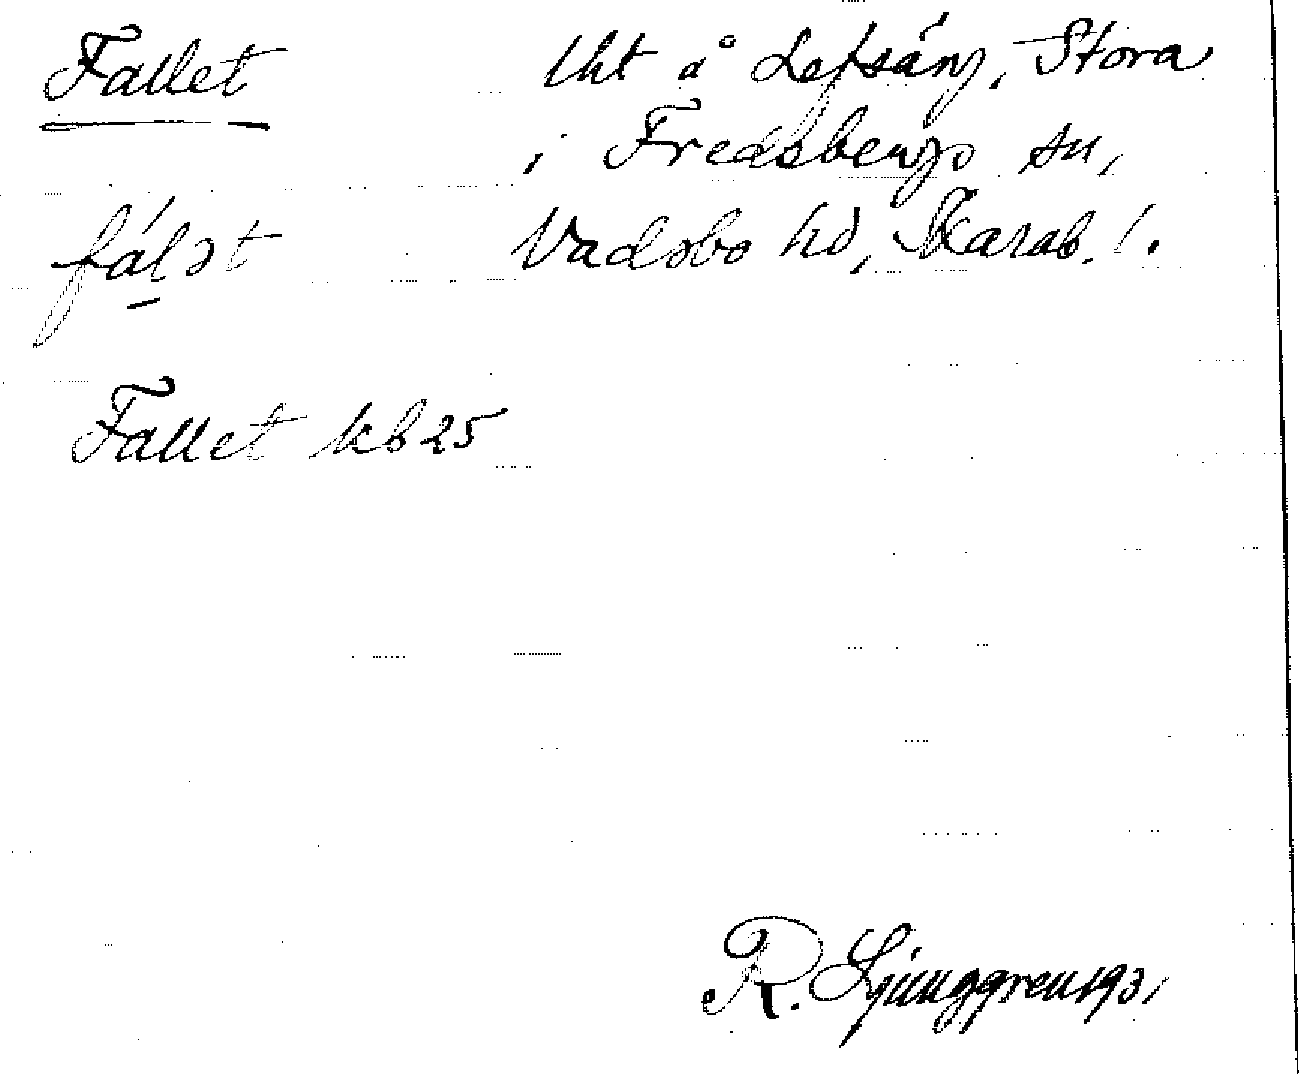 Fallet lht å Lefsäng, Stora
i Fredsbergs sn,
fálət Vadsbo hd, Skarab. l.
Fallet kb 25
R. Ljunggren 1931